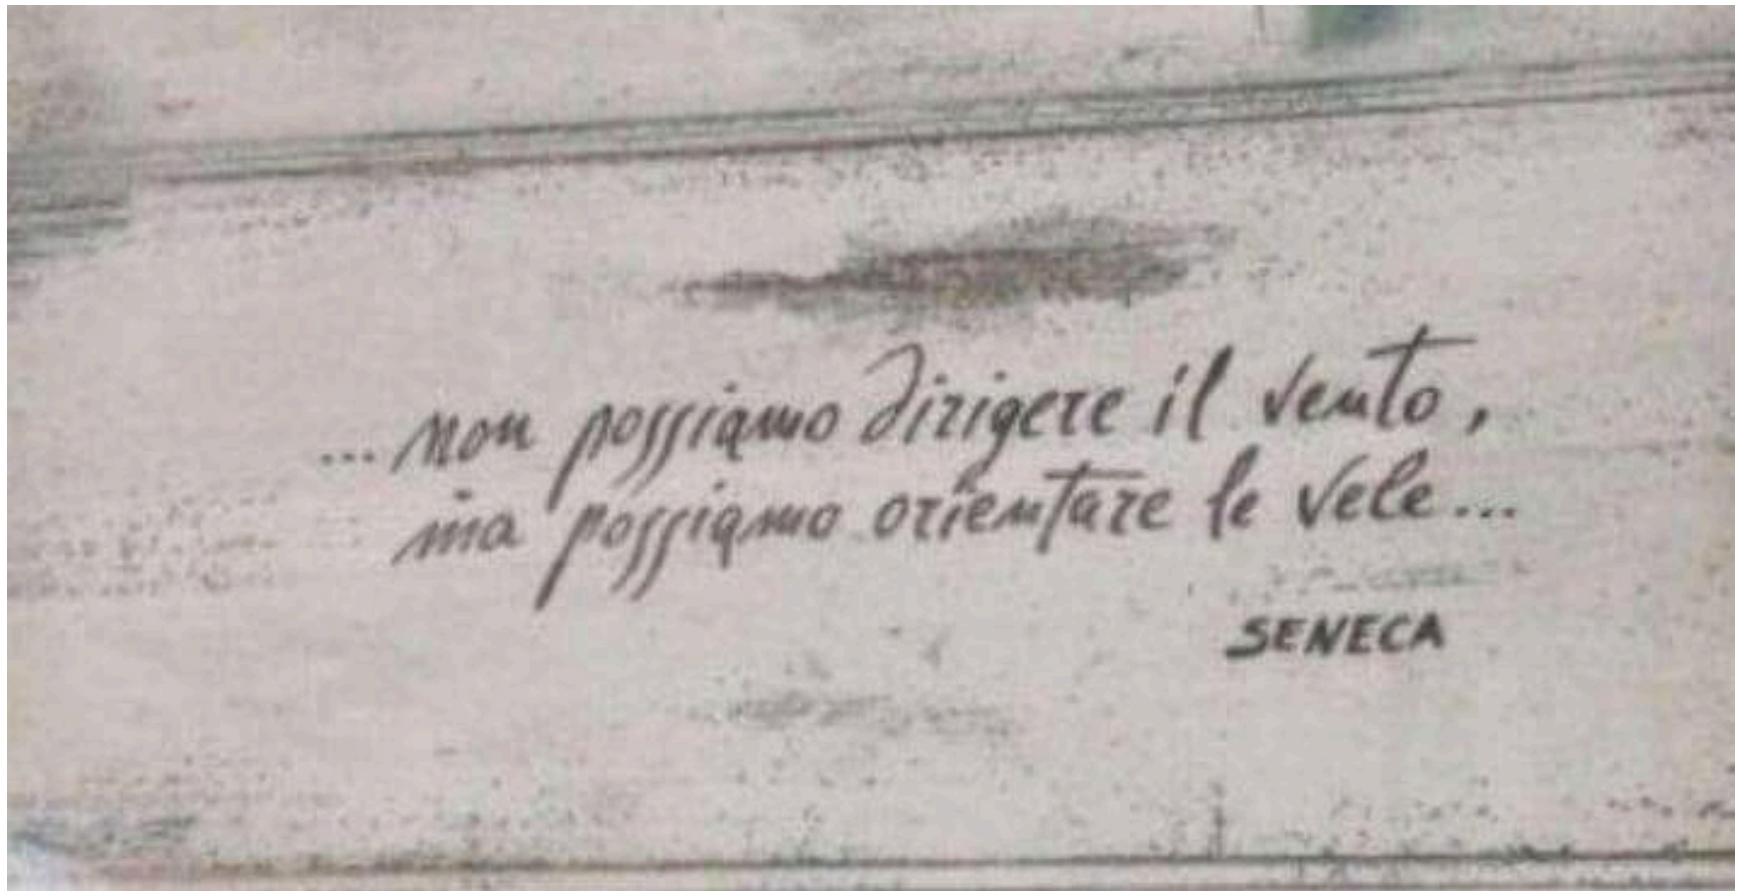 ...non possiamo dirigere il vento,
ma possiamo orientare le vele...
SENECA